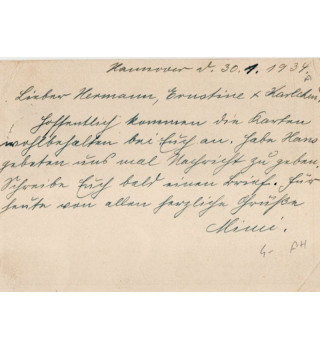 Hannover d. 30.1.1934.
Lieber Hermann, Ernstine & Karlchen,
Hoffentlich kommen die Karten
wohlbehalten bei Euch an. Habe Hans
gebeten uns mal Nachricht zu geben.
Schreibe Euch bald einen Brief. Für
heute von allen herzliche Grüße
Mimi.